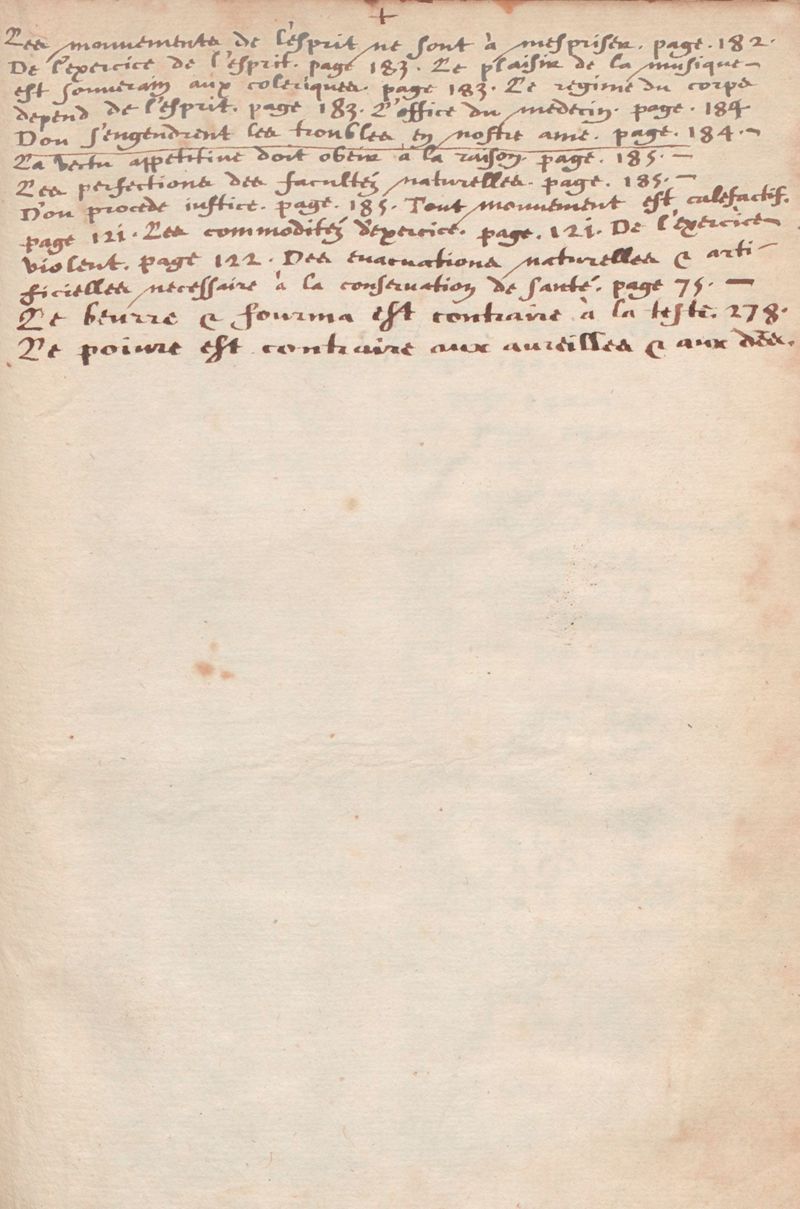 +
Les mouvements de l'esprit ne sont à mespriser. page. 182.
De l'exercice de l'esprit. page 183. Le plaisir de la musique
est souverain aux coleriques. page 183. Le regime du corps
depend de l'esprit. page 183. L'office du medecin. page. 184
D'ou s'engendrent les troubles en nostre ame. page. 184. -
La vertu appetitive doit obeir à la raison. page. 185. -
Les perfections des facultez naturelles. page. 185. -
D'ou procede iustice. page. 185. Tout mouvement est calefactif.
page 121. Les commoditez d'exercice. page. 121. De l'exercice
violent. page 122. Des evacuations naturelles & arti-
ficielles necessaire à la conservation de santé. page 75. -
Le beurre & fourma est contraire à la teste. 278.
Le poivre est contraire aux aureilles & aux dēs.